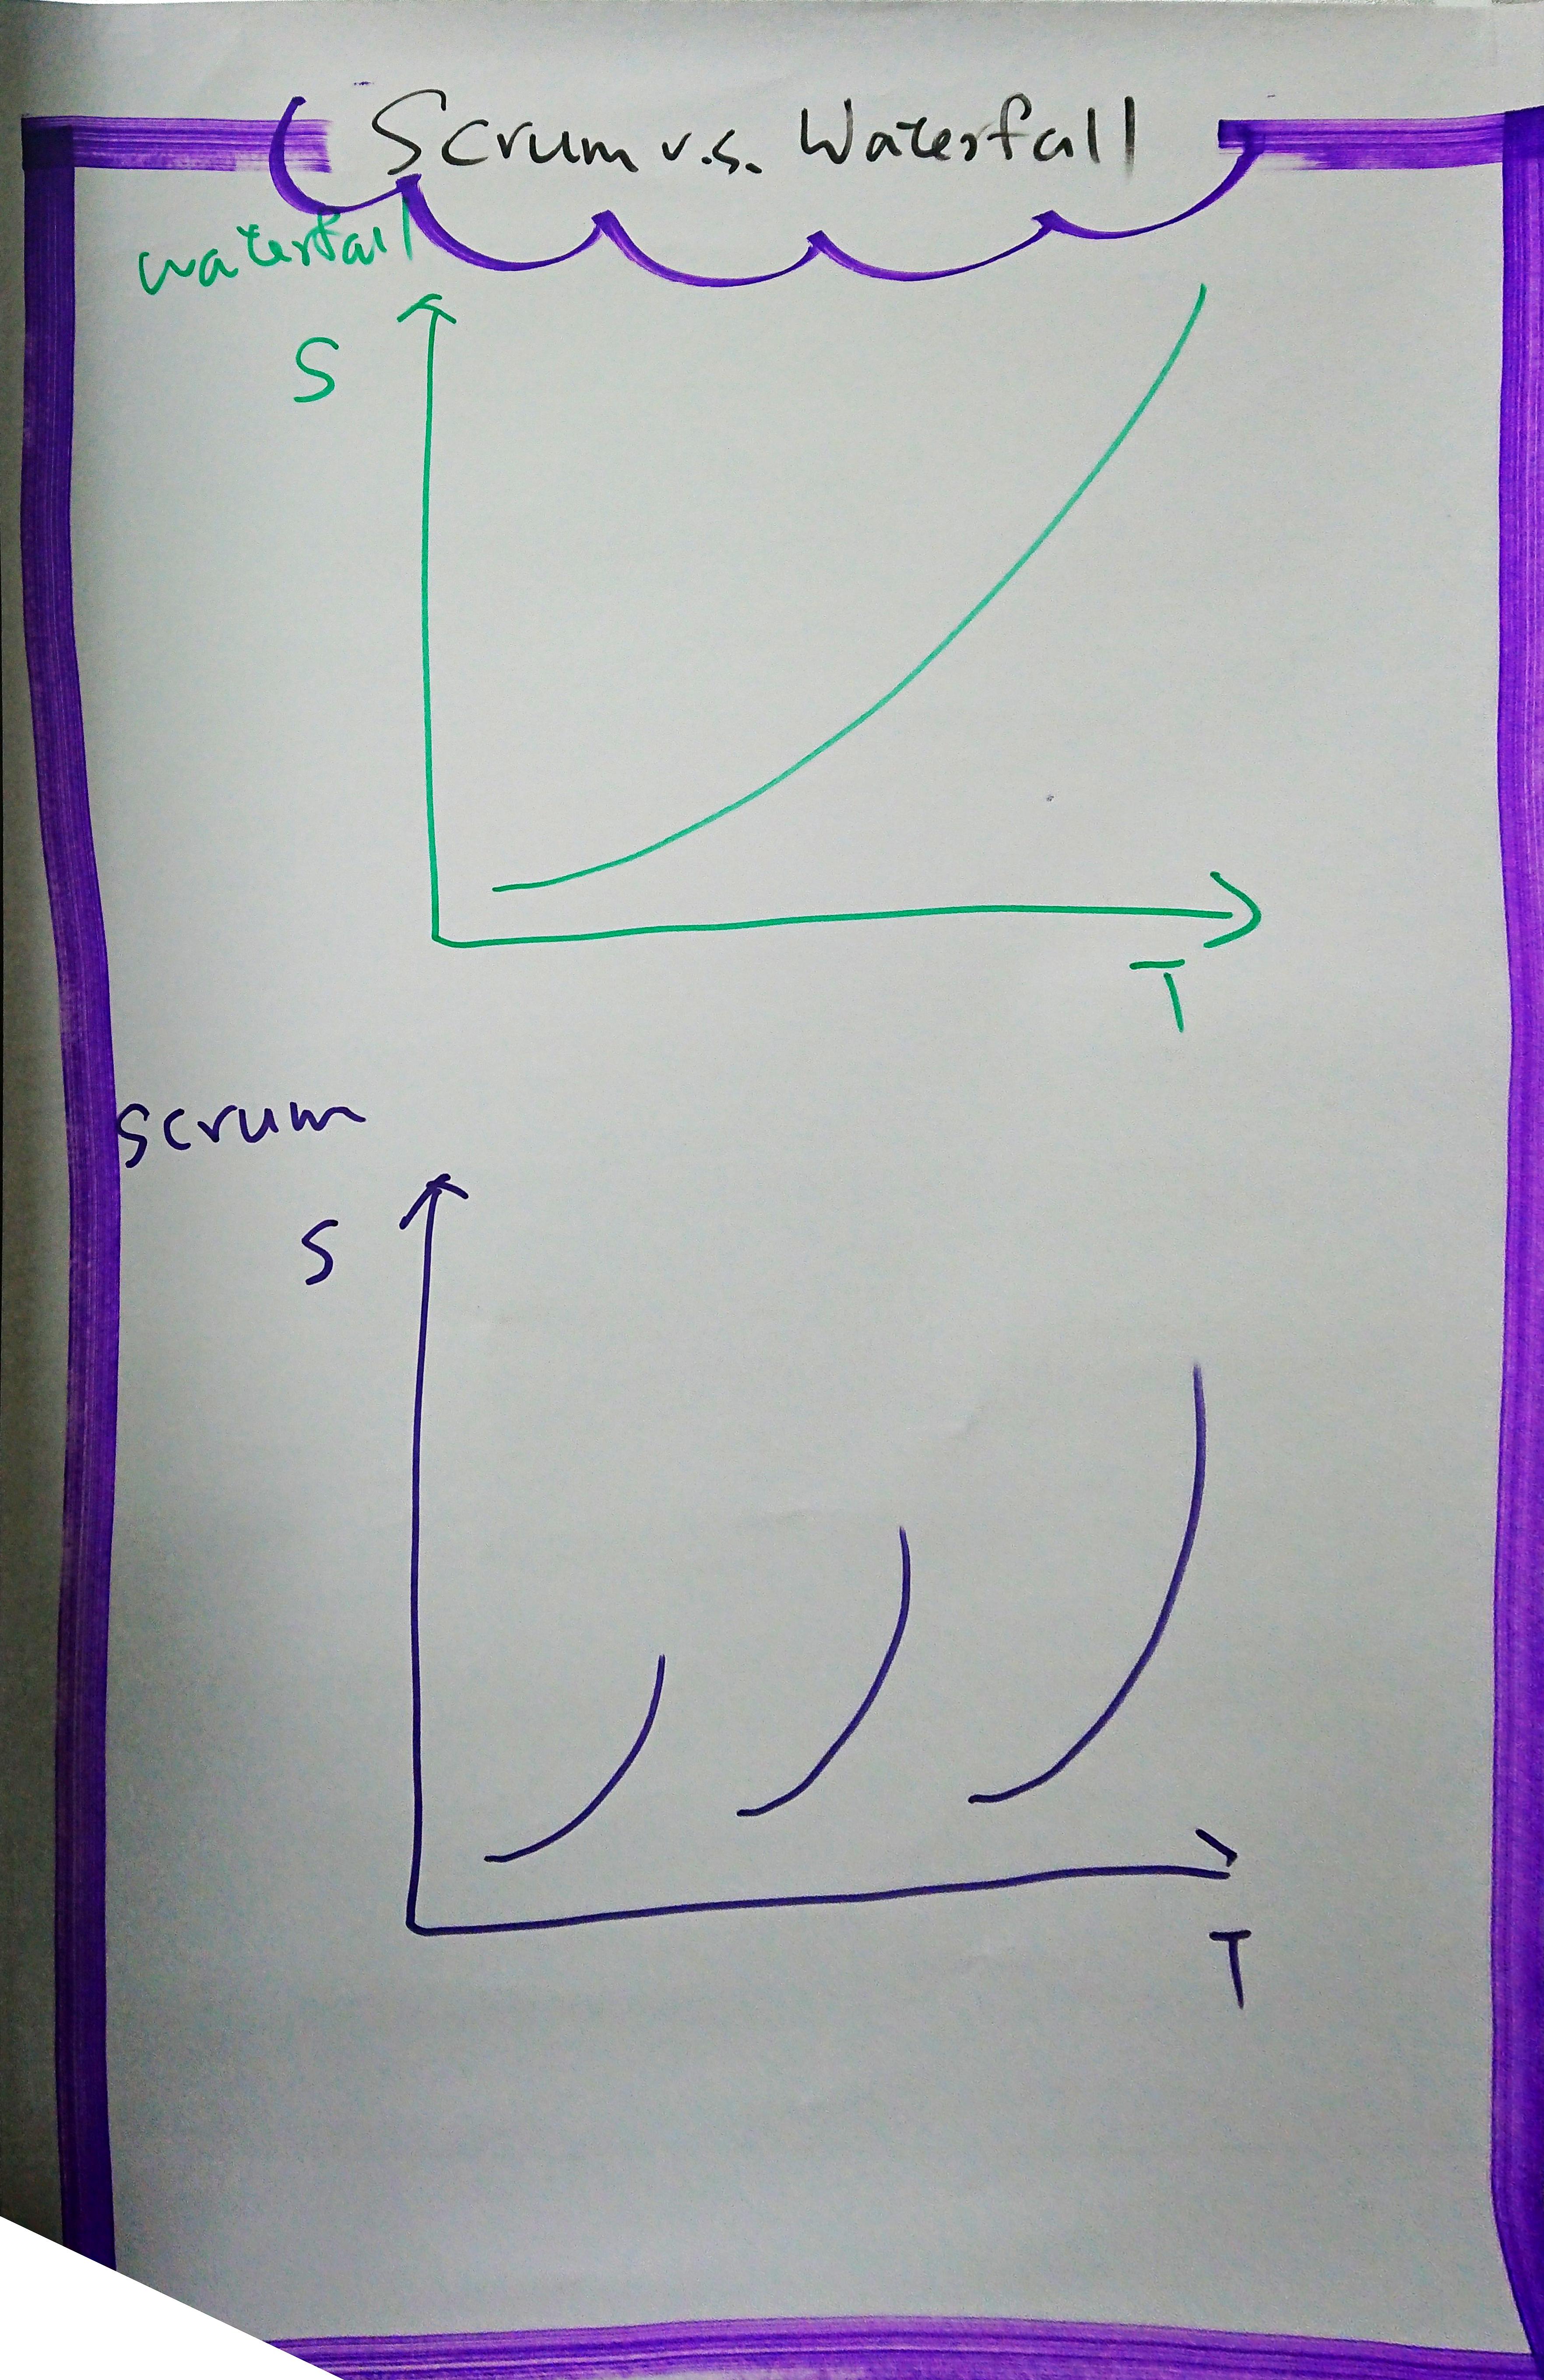 Scrum v.s. Waterfall
waterfall
S
T
scrum
S
T